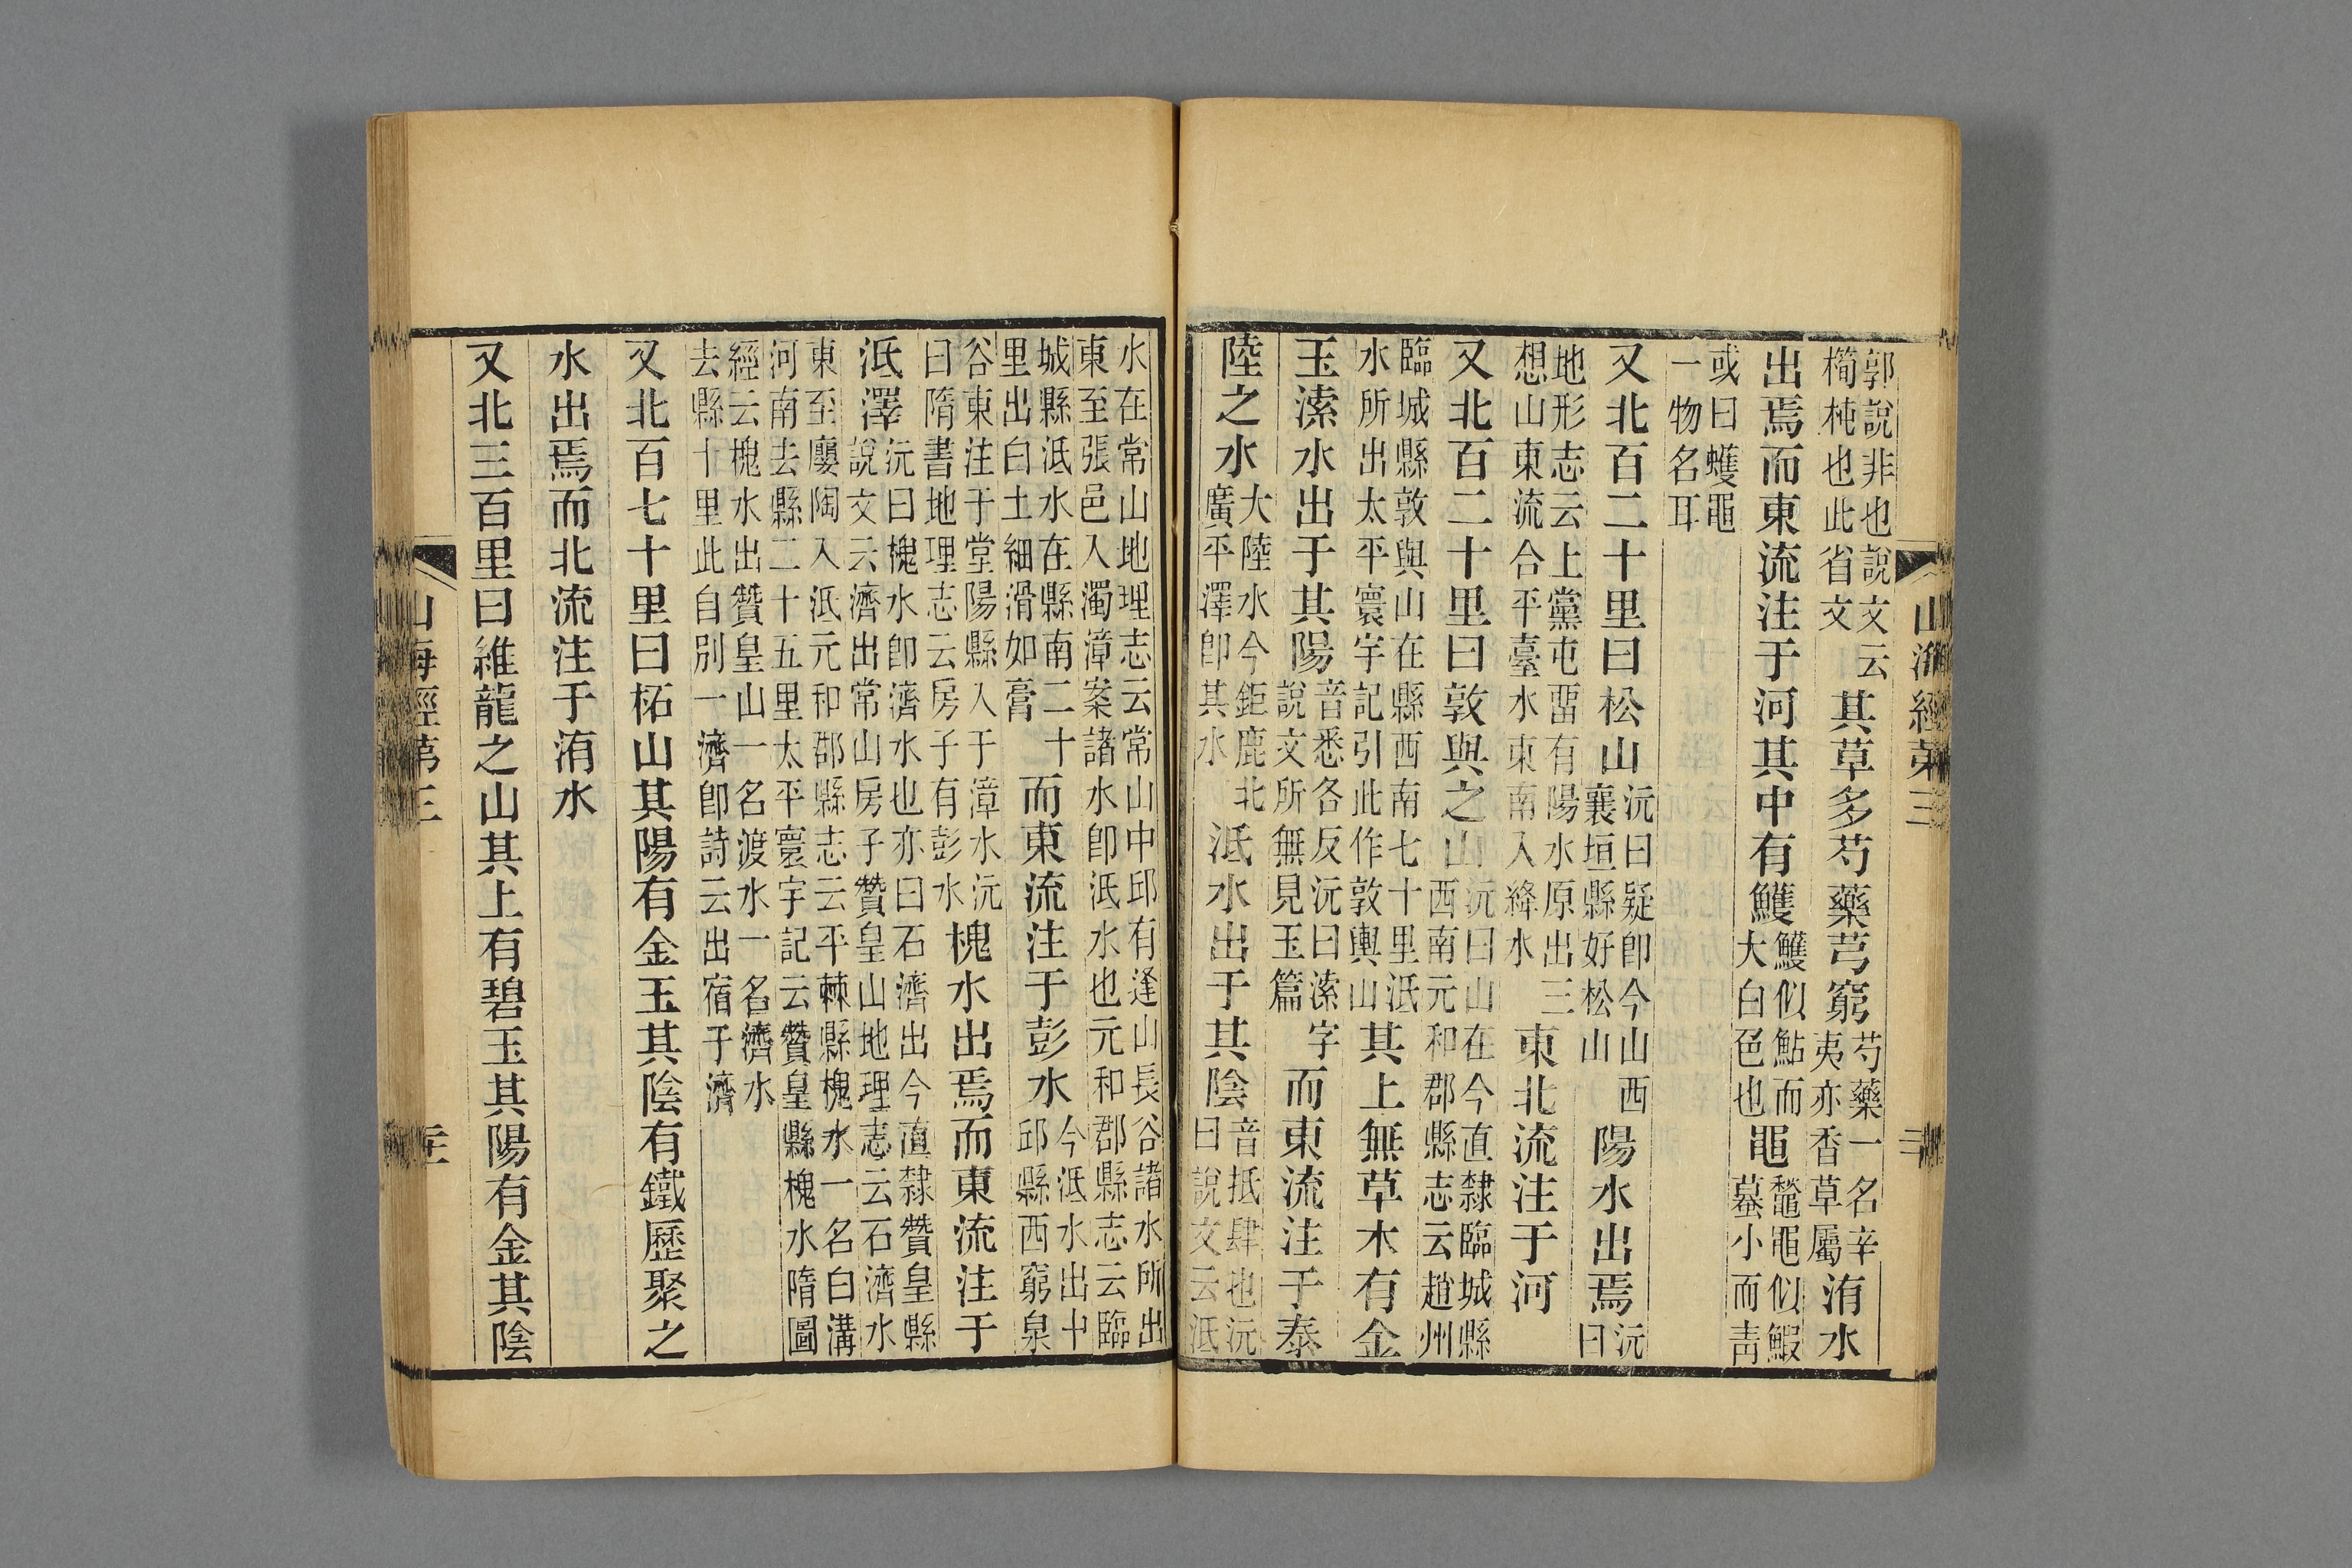 郭說非也說文云
橁杶也此省文
其草多芍藥芎窮
芍藥一名辛
夷亦香草屬
洧水
出焉而東流注于河其中有鱯
鱯似鮎而
大白色也
黽
鼅黽似鰕
蟇小而靑
或曰蠖黽
一物名耳
又北百二十里曰松山
沅曰疑卽今山西
襄垣縣好松山
陽水出焉
沅
曰
地形志云上黨屯畱有陽水原出三
想山東流合平臺水東南入絳水
東北流注于河
又北百二十里曰敦與之山
沅曰山在今直隸臨城縣
西南元和郡縣志云趙州
臨城縣敦與山在縣西南七十里泜
水所出太平寰宇記引此作敦輿山
其上無草木有金
玉溹水出于其陽
音悉各反沅曰溹字
說文所無見玉篇
而東流注于泰
陸之水
大陸水今鉅鹿北
廣平澤卽其水
泜水出于其陰
音抵肆也沅
曰說文云泜
水在常山地理志云常山中邱有逢山長谷諸水所出
東至張邑入濁漳案諸水卽泜水也元和郡縣志云臨
城縣泜水在縣南二十
里出白土細滑如膏
而東流注于彭水
今泜水出中
邱縣西窮泉
谷東注于堂陽縣入于漳水沅
曰隋書地理志云房子有彭水
槐水出焉而東流注于
泜澤
沅曰槐水卽濟水也亦曰石濟出今直隸贊皇縣
說文云濟出常山房子贊皇山地理志云石濟水
東至廮陶入泜元和郡縣志云平棘縣槐水一名白溝
河南去縣二十五里太平寰宇記云贊皇縣槐水隋圖
經云槐水出贊皇山一名渡水一名濟水
去縣十里此自別一濟卽詩云出宿于濟
又北百七十里曰柘山其陽有金玉其陰有鐵歷聚之
水出焉而北流注于洧水
又北三百里曰維龍之山其上有碧玉其陽有金其陰